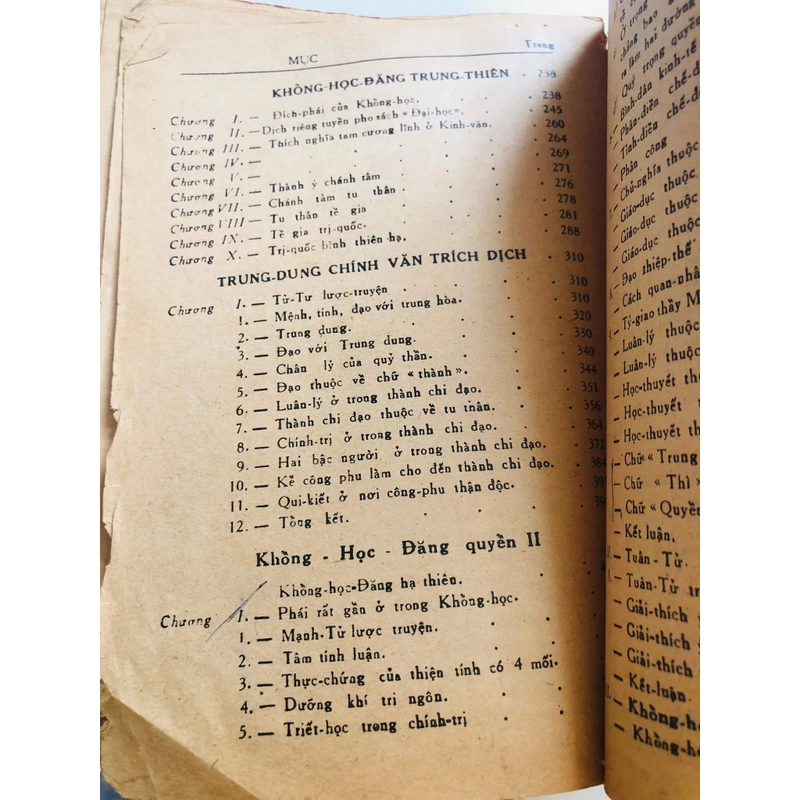 MỤC Trang
KHỒNG-HỌC-ĐĂNG TRUNG-THIÊN 238
Chương I. — Đích-phái của Khồng-học. 238
Chương II. — Dịch riêng tuyền pho sách « Đại-học». 245
Chương III. — Thích nghĩa tam cương lĩnh ở Kinh-văn. 260
Chương IV. — 264
Chương V. — 269
Chương VI. — Thành ý chánh tâm 271
Chương VII. — Chánh tâm tu thân 276
Chương VIII — Tu thân tề gia 278
Chương IX. — Tề gia trị-quốc. 281
Chương X. — Trị-quốc bình thiên-hạ. 288
TRUNG-DUNG CHÍNH VĂN TRÍCH DỊCH 310
Chương I. — Tử-Tư lược-truyện 310
1. — Mệnh, tính, đạo với trung hòa. 310
2. — Trung dung. 320
3. — Đạo với Trung dung. 330
4. — Chân lý của quỷ thần. 340
5. — Đạo thuộc về chữ “thành”. 344
6. — Luân-lý ở trong thành chi đạo. 351
7. — Thành chi đạo thuộc về tu thân. 356
8. — Chính-trị ở trong thành chi đạo. 364
9. — Hai bậc người ở trong thành chi đạo. 372
10. — Kề công phu làm cho đến thành chi đạo. 384
11. — Qui-kiết ở nơi công-phu thận độc. 39
12. — Tồng kết. 39
Khồng - Học - Đăng quyền II
Khồng-học-Đăng hạ thiên.
Chương I. — Phái rất gần ở trong Khồng-học.
1. — Mạnh-Tử lược truyện.
2. — Tâm tính luận.
3. — Thực-chứng của thiện tính có 4 mối.
4. — Dưỡng khí tri ngôn.
5. — Triết-học trong chính-trị
chẳng bao
ra làm hai đường
Quý trọng quyền
Bình-dân kinh-tế
Phân-điền chế-đ
Tỉnh-điền chế-đ
Phân công
Chủ-nghĩa thuộc
Giáo-dục thuộc
Giáo-dục thuộc
Giáo-dục thuộc
Đạo thiệp-thế
Cách quan-nhâ
Tỷ-giao thầy M
Luân-lý thuộc
Luân-lý thuộc
Học-thuyết
Học-thuyết
Học-thuyết
— Chữ “Trung
— Chữ “Thì”
— Chữ “Quyền
— Kết luận.
— Tuân-Tử.
— Tuân-Tử tr
— Giải-thích
— Giải-thích
— Giải-thích
— Kết-luận
— Khồng-họ
— Khồng-họ